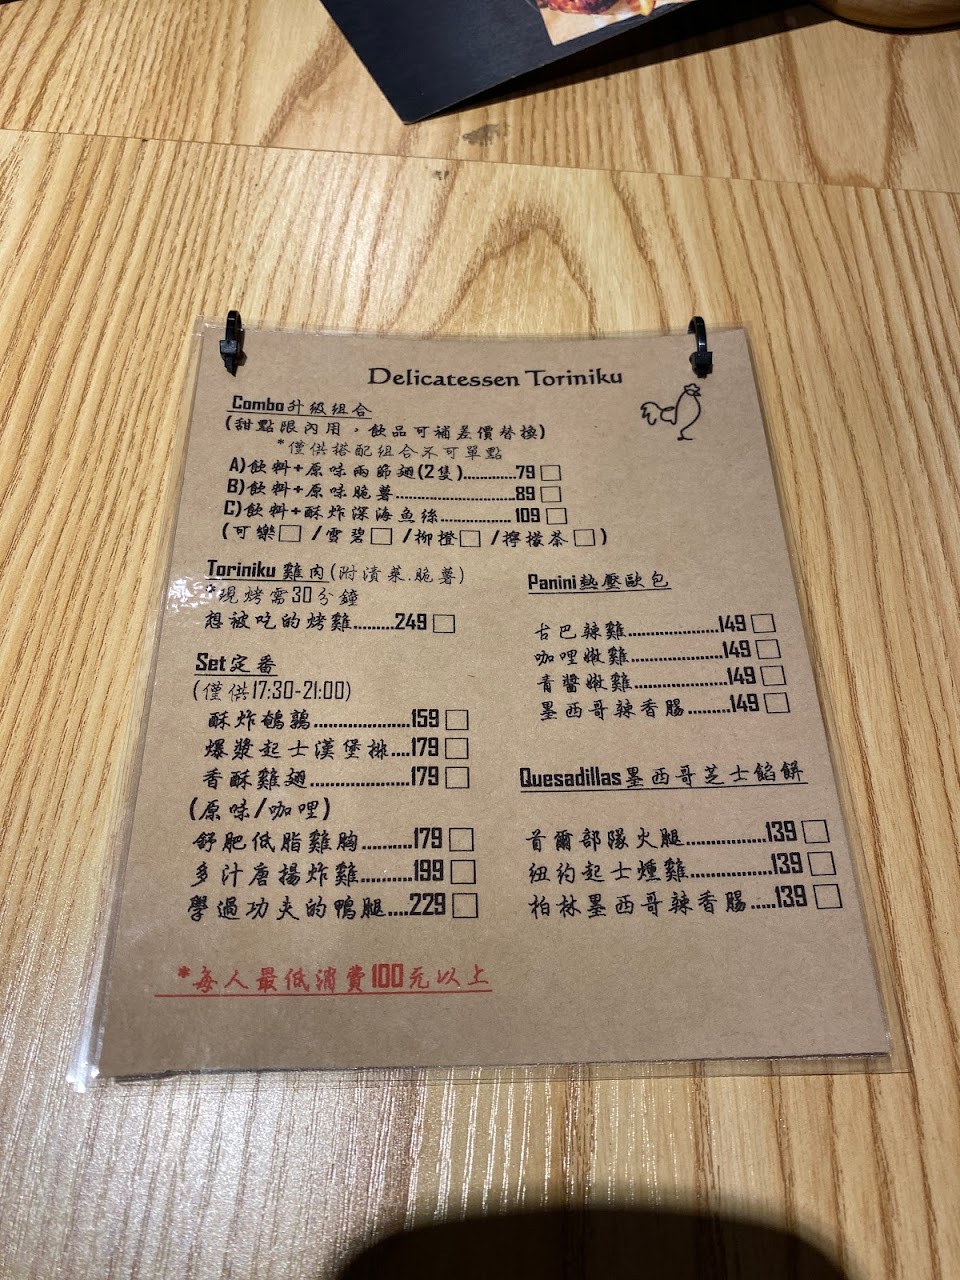 Delicatessen Toriniku
Combo升級組合
(甜點限內用，飲品可補差價替換)
*僅供搭配組合不可單點
A)飲料+原味兩節翅(2隻).............79□
B)飲料+原味脆薯.............................89□
C)飲料+酥炸深海魚絲.................109□
(可樂□ /雪碧□ /柳橙□ /檸檬茶□)
Toriniku 雞肉(附漬菜.脆薯)
*現烤需30分鐘
想被吃的烤雞.........249□
Set定番
(僅供17:30-21:00)
酥炸鵪鶉....................159□
爆漿起士漢堡排....179□
香酥雞翅.....................179□
(原味/咖哩)
舒肥低脂雞胸..........179□
多汁唐揚炸雞..........199□
學過功夫的鴨腿....229□
Panini熱壓歐包
古巴辣雞...................149□
咖哩嫩雞...................149□
青醬嫩雞...................149□
墨西哥辣香腸.........149□
Quesadillas墨西哥芝士餡餅
首爾部隊火腿................139□
紐約起士燻雞................139□
柏林墨西哥辣香腸.....139□
*每人最低消費100元以上